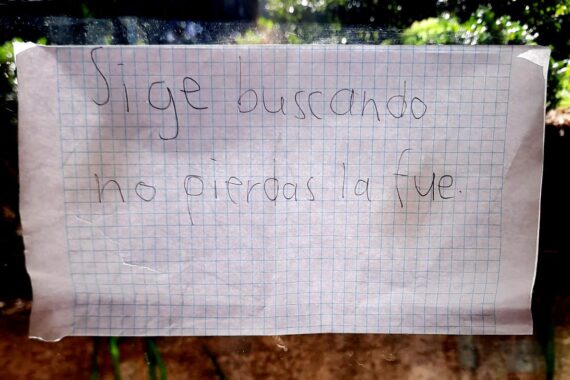 Sige buscando
no pierdas la fue.